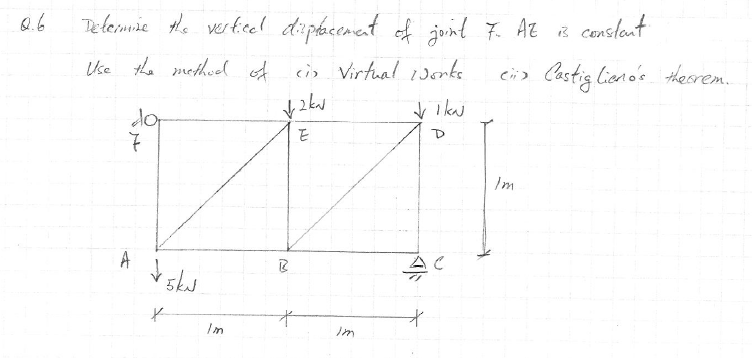 Q.6 Determine the vertical displacement of joint F. AE is constant
Use the method of (i) Virtual Works (ii) Castigliano's theorem.
2kN
1kN
F
E
D
1m
A
B
C
5kN
1m
1m